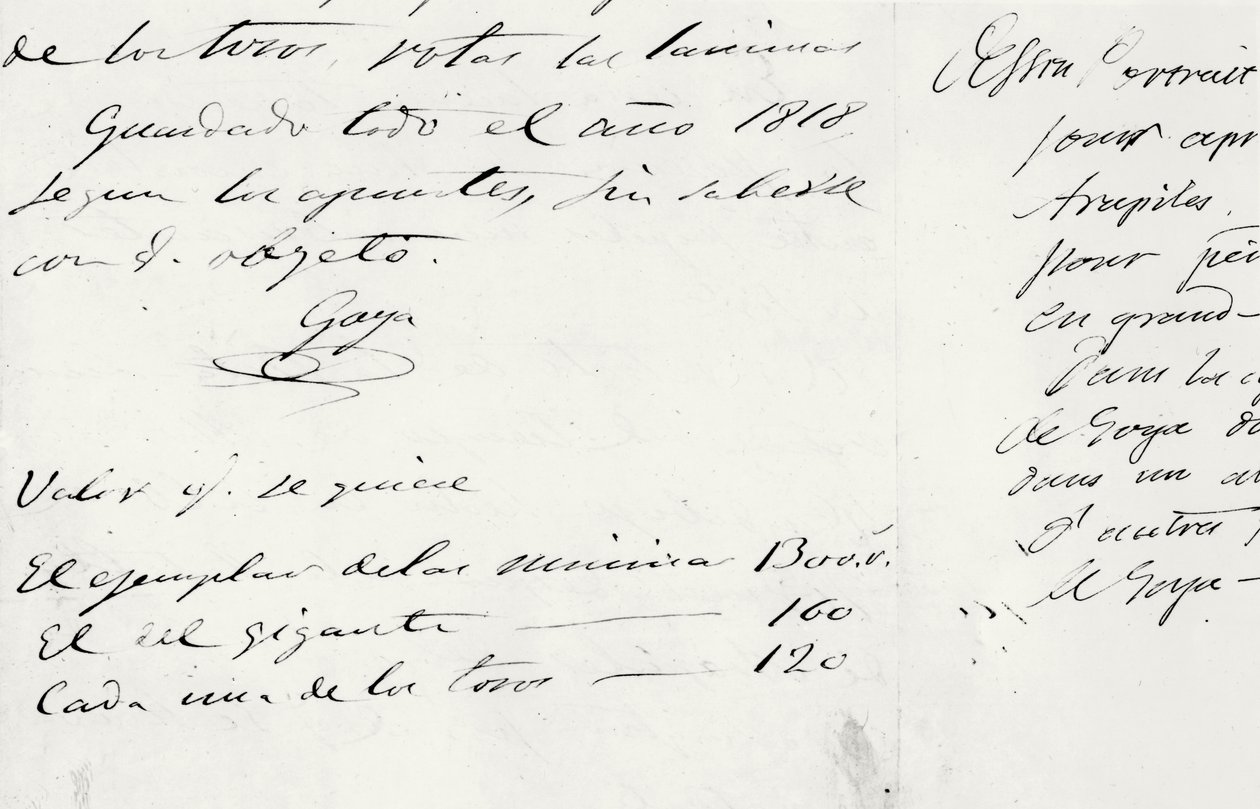 de los toros, rotas las laminas
Guardado todo el año 1818
segun los apuntes, sin saberse
con q. objeto.
Goya
Valor q. se quiere
El ejemplar de las mininas 1300.r.
El del gigante — 160
Cada una de los toros — 120
Portrait
pour apr
Arapiles,
pour pei
en grand—
Dans la
de Goya do
dans un
d'autres
de Goya—